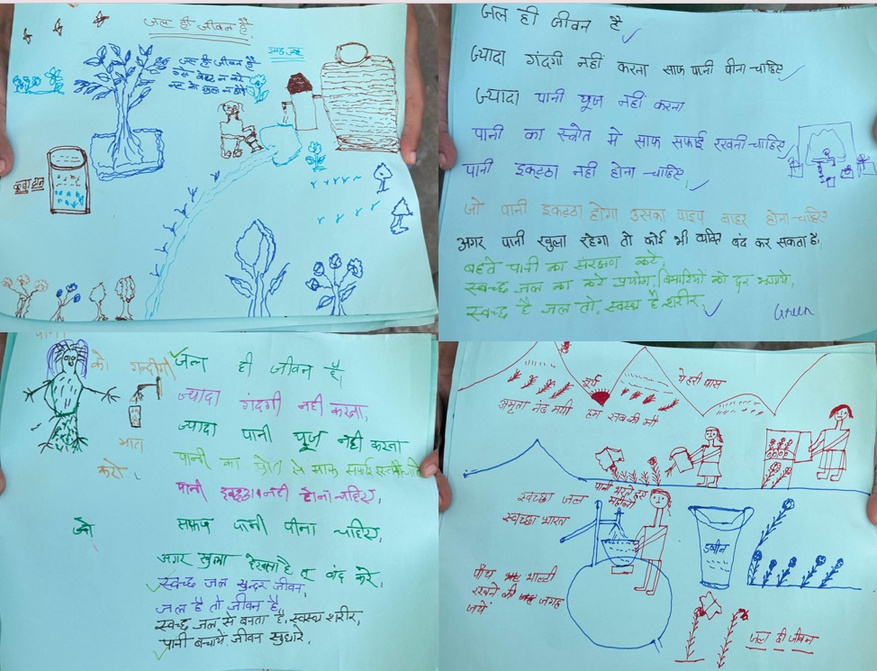 जल ही जीवन है
जल ही जीवन है
कुडा दान
जल ही जीवन है
ज्यादा गंदगी नहीं करना साफ पानी पीना चाहिए
ज्यादा पानी यूज नहीं करना
पानी का स्त्रोत मे साफ सफाई रखनी चाहिए
पानी इकट्ठा नही होना चाहिए
जो पानी इकट्ठा होगा उसका पाइप बाहर होना चाहिए
अगर पानी खुला रहेगा तो कोई भी व्यक्ति बंद कर सकता है।
बहते पानी का संरक्षण करे,
स्वच्छ जल का करे प्रयोग, बिमारियो को दूर भगाये,
स्वच्छ है जल तो, स्वस्थ है शरीर,
Green
को गन्दीगी
मत
करो
जल ही जीवन है।
ज्यादा गंदगी नही करना,
ज्यादा पानी यूज नही करना
पानी का स्रोत से साफ सफाई
पानी इकट्ठा नही होना चाहिए,
जो साफ पानी पीना चाहिए,
अगर खुला देखा है तू बंद करे,
स्वच्छ जल सुन्दर जीवन,
जल है तो जीवन है,
स्वच्छ जल से बनता है, स्वस्थ शरीर,
पानी बचाये जीवन सुधारे,
सूर्य
अमृता
हम सब की माँ
पानी भरते हुए
स्वच्छा जल
स्वच्छा भारत
डस्बीन
पाँच बाल्टी
रखने की जगह
जल ही जीवन